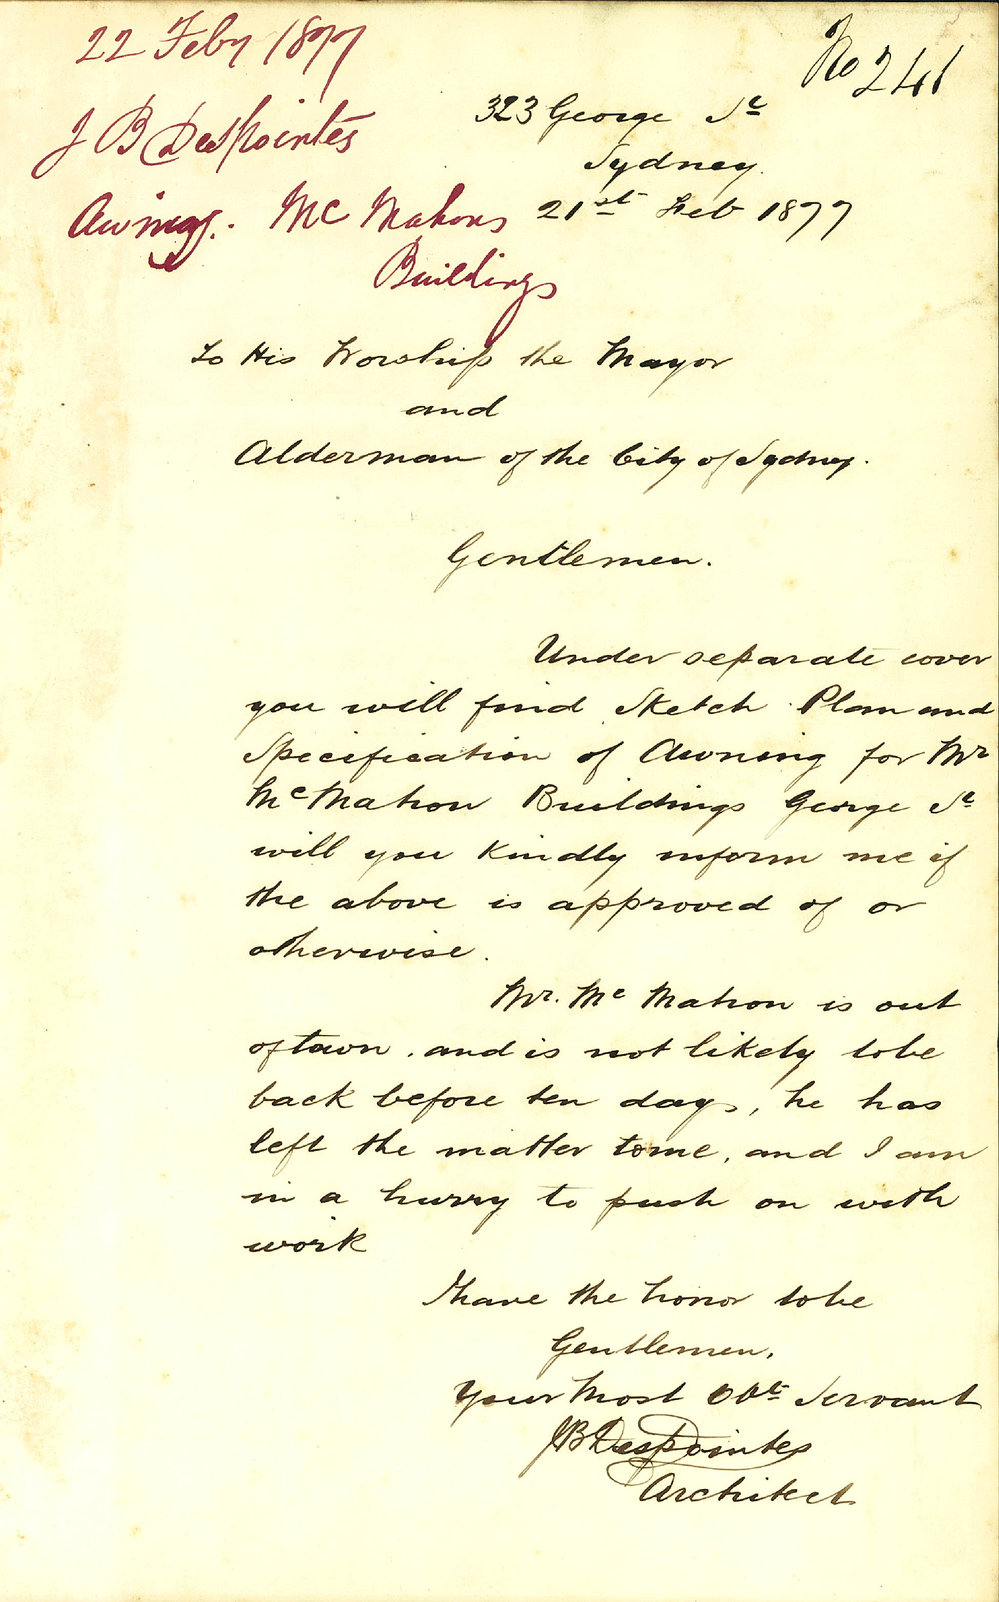 22 Feby 1877
J B DesPointes
Awnings. Mc Mahons
Buildings
No 241
323 George St
Sydney.
21st Feb 1877
To His Worship the Mayor
and
Alderman of the City of Sydney.
Gentlemen.
Under separate cover
you will find Sketch Plan and
Specification of Awning for Mr
McMahon Buildings George St
will you kindly inform me if
the above is approved of or
otherwise.
Mr. Mc Mahon is out
of town. and is not likely to be
back before ten days, he has
left the matter to me, and I am
in a hurry to push on with
work
I have the honor to be
Gentlemen,
Your Most Obt Servant
JB DesPointes
Architect